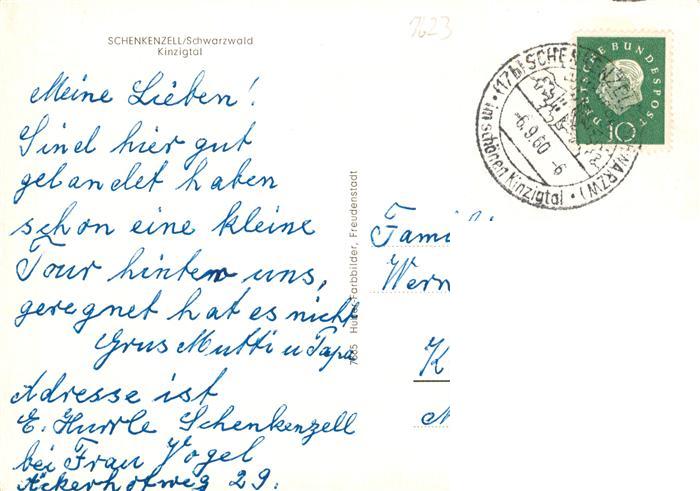 1623
SCHENKENZELL/Schwarzwald
Kinzigtal
Meine Lieben!
Sind hier gut
gelandet haben
schon eine kleine
Tour hintern uns,
geregnet hat es nicht
Grus Mutti u Papa
Adresse ist
E. Hurrle Schenkenzell
bei Frau Vogel
Ackerhofweg 29.
7685 Farbbilder, Freudenstadt
(17b) SCHENKENZELL (SCHWARZW)
im schönen Kinzigtal
-6.9.60-6
DEUTSCHE BUNDESPOST
10
Fami
Wern
K